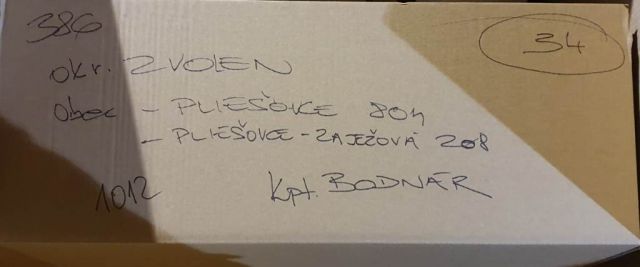 386
34
okr. ZVOLEN
Obec - PLIEŠOVCE 804
- PLIEŠOVCE - ZAJEŽOVÁ 208
1012
kpt. BODNÁR